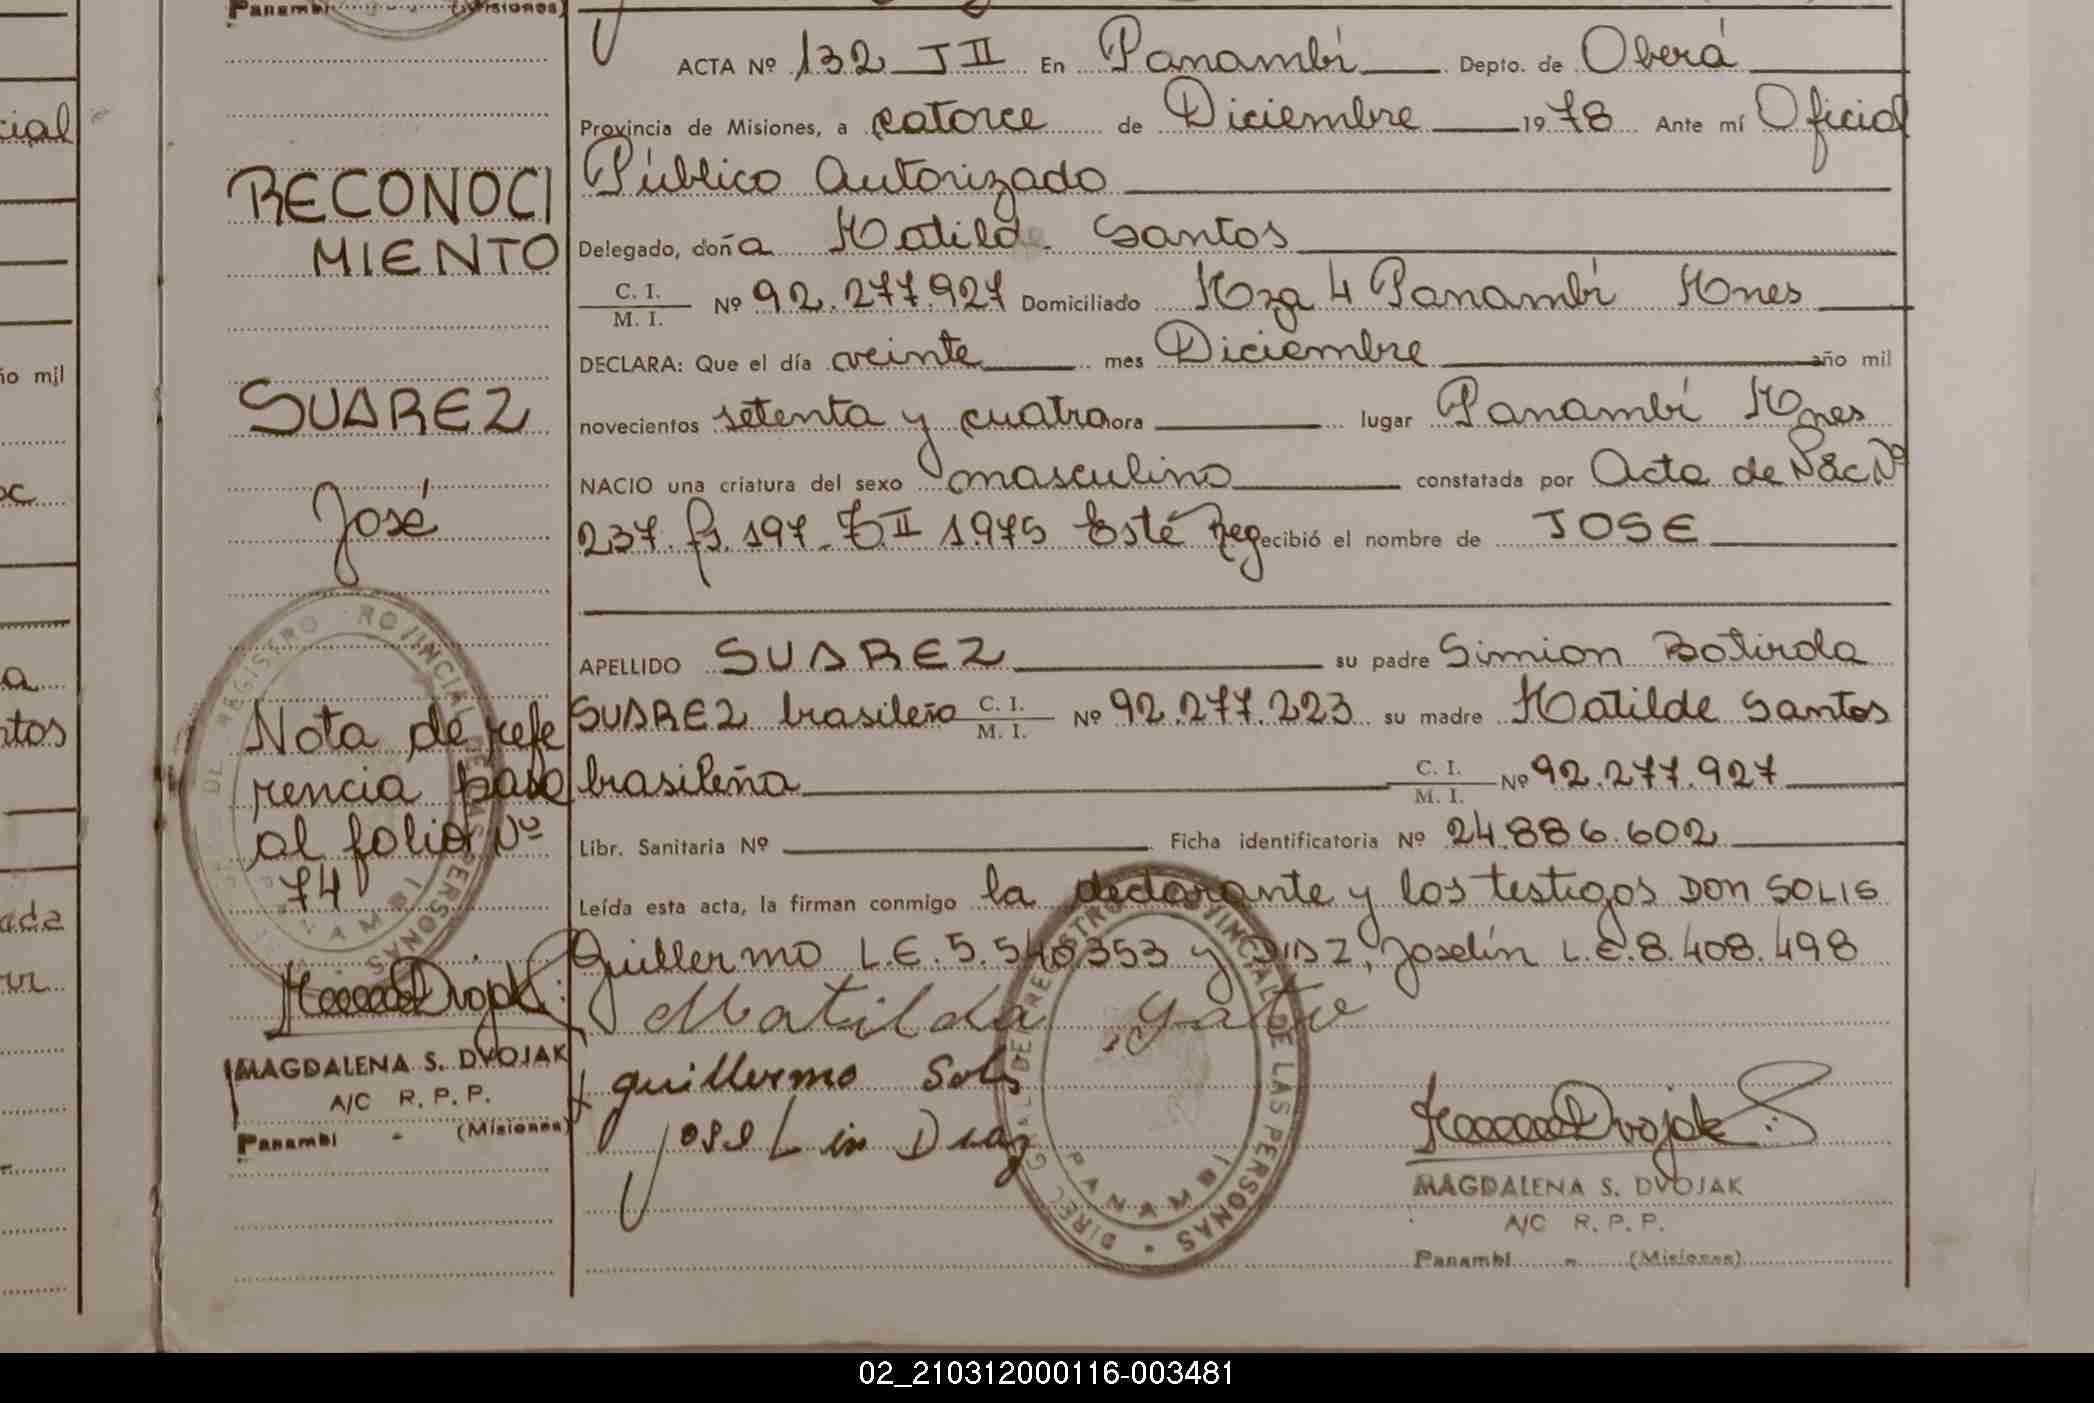 Panambí (Misiones)
ACTA Nº 132 T II En Panambí Depto. de Oberá
Provincia de Misiones, a catorce de Diciembre 1978 Ante mí Oficial
Público Autorizado
Delegado, doña Matild Santos
C. I. / M. I. Nº 92.277.927 Domiciliado Mza 4 Panambí Mnes
DECLARA: Que el día veinte mes Diciembre año mil
novecientos setenta y cuatro hora lugar Panambí Mnes
NACIO una criatura del sexo masculino constatada por Acta de Nac Nº
237. fs. 197. T II 1975 Esté Reg recibió el nombre de JOSE
APELLIDO SUAREZ su padre Simion Botirda
SUAREZ brasileño C. I. / M. I. Nº 92.277.223 su madre Matilde Santos
brasileña C. I. / M. I. Nº 92.277.927
Libr. Sanitaria Nº Ficha identificatoria Nº 24.886.602
Leída esta acta, la firman conmigo la declarante y los testigos DON SOLIS
Guillermo L.E. 5.540.353 y DIAZ, Joselín L.E. 8.408.498
Matilda
guillermo Solis
Jose Lin Diaz
Dvojak
MAGDALENA S. DVOJAK
A/C R. P. P.
Panambí - (Misiones)
RECONOCI
MIENTO
SUAREZ
José
Nota de refe
rencia pase
al folio Nº
74
Dvojak
MAGDALENA S. DVOJAK
A/C R. P. P.
Panambí - (Misiones)
DIREC GRAL DE REGISTRO PROVINCIAL DE LAS PERSONAS
PANAMBI
cial
ño mil
a
ntos
ada
02_210312000116-003481